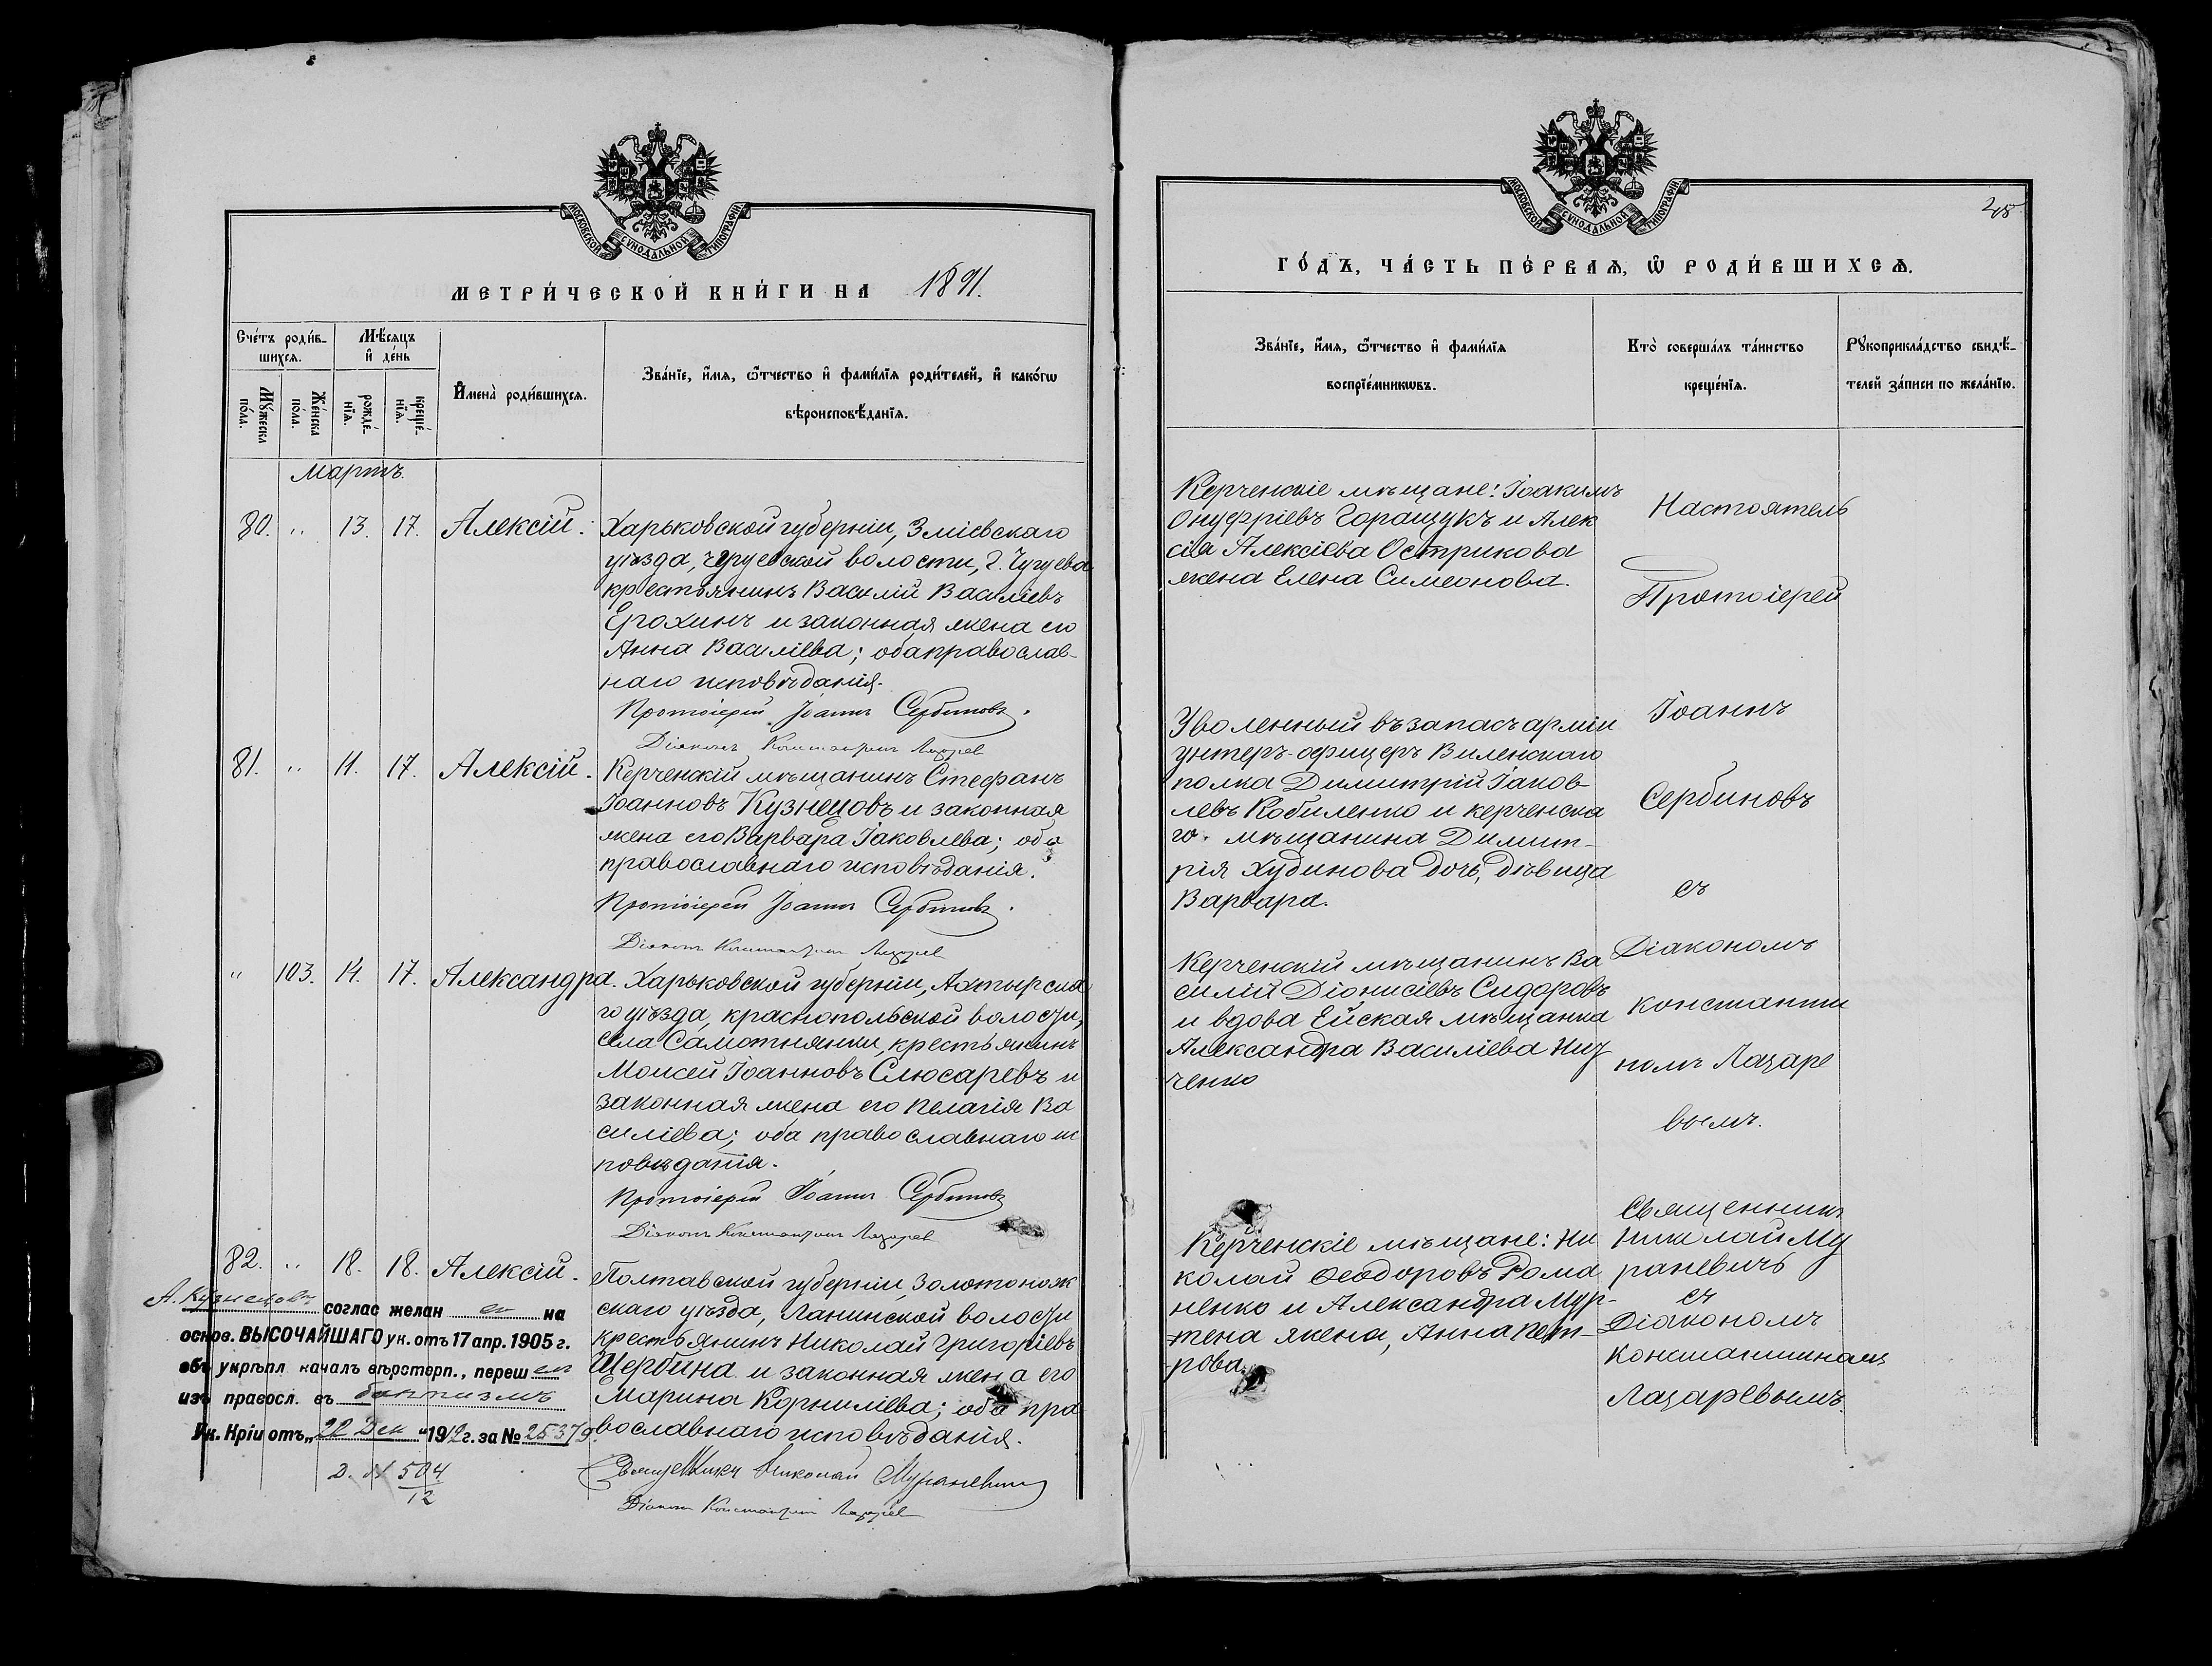 МОСКОВСКОЙ СѴНОДАЛЬНОЙ ТИПОГРАФІИ
МЕТРИ́ЧЕСКОЙ КНИ́ГИ НА 1891.
Сче́тъ роди́в-
шихся.
Мѣ́сяцъ
и҆ де́нь
Мꙋ́жеска
по́ла.
Же́нска
по́ла.
рожде́-
нїя.
креще́-
нїя.
И҆мена̀ роди́вшихся.
Зва́нїе, и҆́мя, ѻ҆́тчество и҆ фами́лїя роди́телей, и҆ како́гѡ
вѣроисповѣ́данїя.
Мартъ.
80. " 13. 17. Алексій.
Харьковской губерніи, Зміевскаго
уѣзда, чугуевской волости, г. Чугуева
крестьянинъ Василій Василіевъ
Ерохинъ и законная жена его
Анна Василіева; оба православ-
наго исповѣданія.
Протоіерей Іоаннъ Сербиновъ.
Діаконъ Константинъ Лазарев
81. " 11. 17. Алексій.
Керченскій мѣщанинъ Стефанъ
Іоанновъ Кузнецовъ и законная
жена его Варвара Іаковлева; оба
православнаго исповѣданія.
Протоіерей Іоаннъ Сербиновъ.
Діаконъ Константинъ Лазарев
" 103. 14. 17. Александра.
Харьковской губерніи, Ахтырска
го уѣзда, краснопольской волости,
села Самотняяки, крестьянинъ
Моисей Іоанновъ Слюсаревъ и
законная жена его Пелагія Ва
силіева; оба православнаго ис
повѣданія.
Протоіерей Іоаннъ Сербиновъ
Діаконъ Константинъ Лазарев
82. " 18. 18. Алексій.
Полтавской губерніи, Золотонож
скаго уѣзда, Лапинской волости
крестьянинъ Николай Григоріевъ
Щербина и законная жена его
Марина Корниліева; оба пра
вославнаго исповѣданія.
Священникъ Николай Мураневичъ
Діаконъ Константинъ Лазарев
А. Кузнецовъ соглас желан ег на
основ. ВЫСОЧАЙШАГО ук. отъ 17 апр. 1905 г.
объ укрѣпл началъ вѣротерп., переш ел
изъ правосл. въ баптизмъ
Ук. Кріи отъ „22 Дек "1912 г. за № 25379.
Д. № 504
12
МОСКОВСКОЙ СѴНОДАЛЬНОЙ ТИПОГРАФІИ
ГО́ДЪ, ЧА́СТЬ ПЕ́РВАЯ, Ѡ҆ РОДИ́ВШИХСЯ.
Зва́нїе, и҆́мя, ѻ҆́тчество и҆ фами́лїя
воспрїе́мникѡвъ.
Кто̀ соверша́лъ та́инство
креще́нїя.
Рꙋкоприкла́дство свидѣ́-
телей за́писи по жела́нїю.
Керченскіе мѣщане: Іоакимъ
Онуфріевъ Горащукъ и Алек
сія Алексіева Острикова
жена Елена Симеонова.
Уволенный въ запасъ арміи
унтеръ-офицеръ Виленскаго
полка Димитрій Іаков
левъ Кобиленко и керченска
го мѣщанина Димит-
рія Худинова дочь, дѣвица
Варвара.
Керченскій мѣщанинъ Ва
силій Діонисіевъ Сидоровъ
и вдова Ейская мѣщанка
Александра Василіева Нич
ченко
Керченскіе мѣщане: Ни
колай Ѳеодоровъ Рома
ненко и Александра Мур-
тена жена, Анна Пет-
рова.
Настоятель
Протоіерей
Іоаннъ
Сербиновъ
съ
Діакономъ
Константи
номъ Лазаре
вымъ.
Священникъ
Николай Му
раневичъ
съ
Діакономъ
Константиномъ
Лазаревымъ.